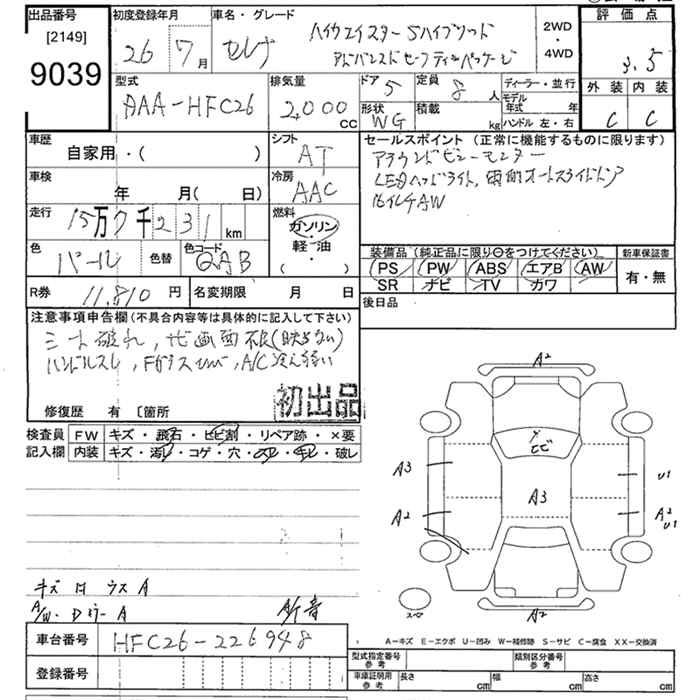 出品番号 初度登録年月 車名・グレード 評価点
[2149] 26 7月 セレナ ハイウェイスター Sハイブリッド 2WD・4WD 3.5
9039 アドバンスドセーフティパッケージ
外装 内装
C C
型式 排気量 ドア 5 定員 8人 ディーラー・並行
AAA-HFC26 2,000cc 形状 WG 積載 kg モデル年式 年
ハンドル 左・右
車歴 シフト セールスポイント (正常に機能するものに限ります)
自家用・( ) AT アラウンドビューモニター
車検 冷房 LEDヘッドライト, 両側オートスライドドア
年 月( 日) AAC
走行 15万7千231km 燃料 ガソリン・軽油・( )
色 パール 色替 色コード QAB
装備品 (純正品に限り○をつけてください) 新車保証書
PS PW ABS エアB AW 有・無
SR ナビ TV カワ
R券 11,810円 名変期限 月 日 後日品
注意事項申告欄(不具合内容等は具体的に記入して下さい)
シート破れ, ナビ画面不良(映らない)
ハンドルスレ, FガラスヒビA/C冷え弱い
初出品
修復歴 有 〔箇所
検査員記入欄 FW キズ・飛石・ヒビ割・リペア跡・×要
内装 キズ・汚れ・コゲ・穴・スレ・キレ・破レ
A2
ヒビ
A3 A3 U1
A2 A2 U1
スペア A2
キズ 凹 ウスA
A/W・DミラーA
車台番号 HFC26-226948
登録番号
A-キズ E-エクボ U-凹み W-補修跡 S-サビ C-腐食 XX-交換済
型式指定番号 参考 類別区分番号 参考
車庫証明用 参考 長さ cm 幅 cm 高さ cm